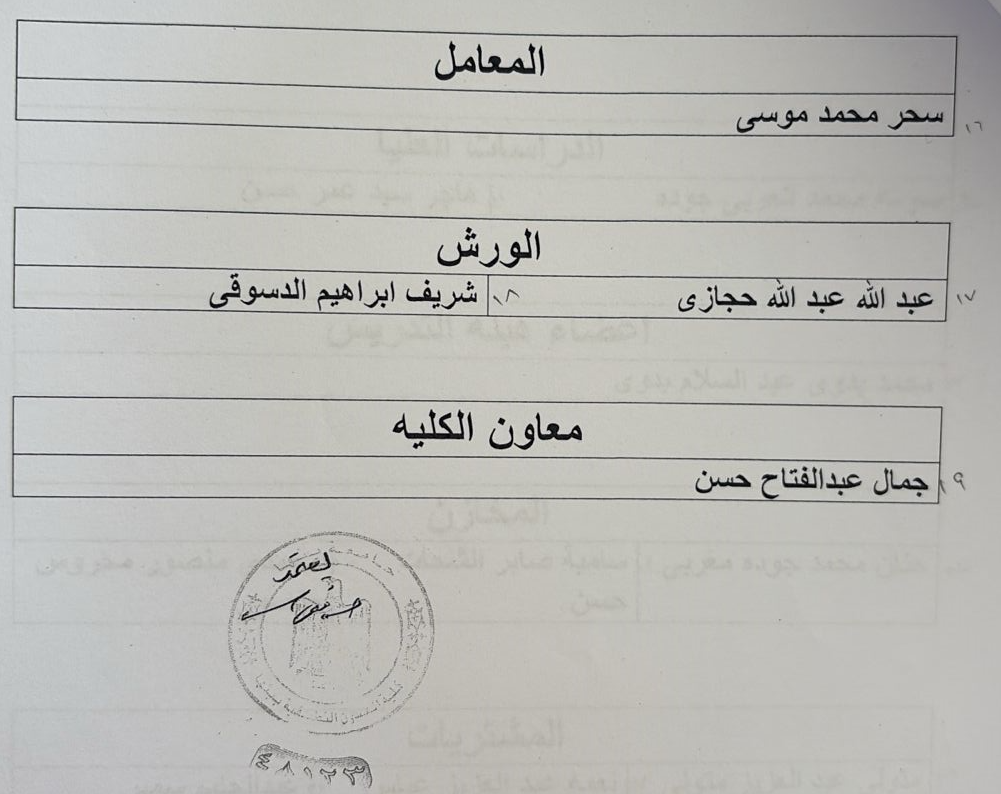 المعامل
سحر محمد موسى ١٦
الورش
عبد الله عبد الله حجازى ١٧
شريف ابراهيم الدسوقى ١٨
معاون الكليه
جمال عبدالفتاح حسن ١٩
يعتمد
جامعة
كلية الفنون التطبيقية
٤٨١٢٣